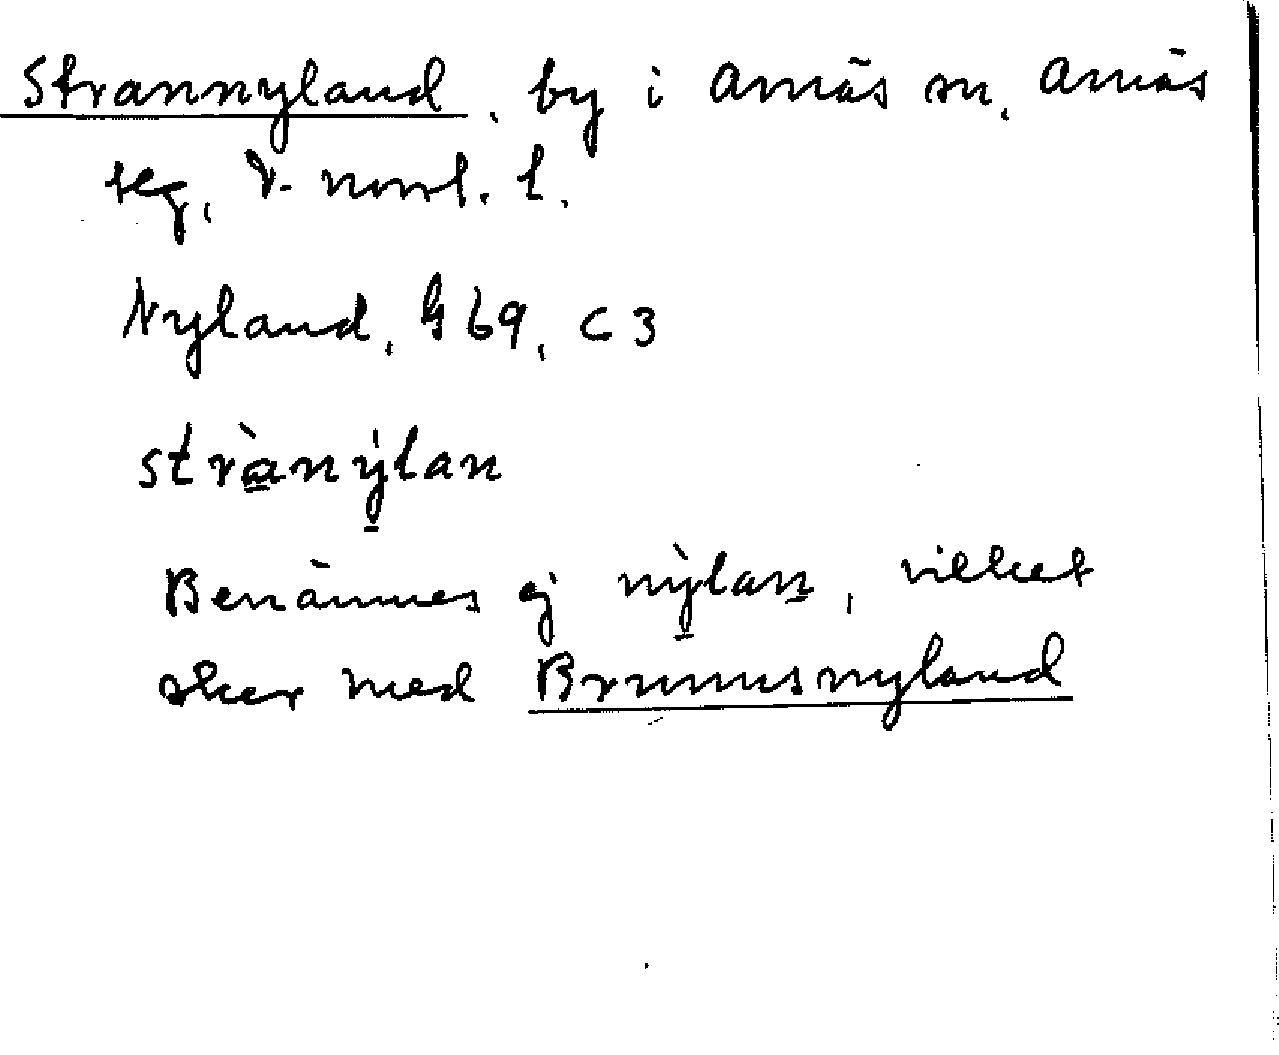 Strannyland, by i Arnäs sn, Arnäs
tg, V. norrl. l.
Nyland, G 69, C 3
stràn̲ẏlan
Benämnes ej nỳlan, vilket
sker med Brunnsnyland